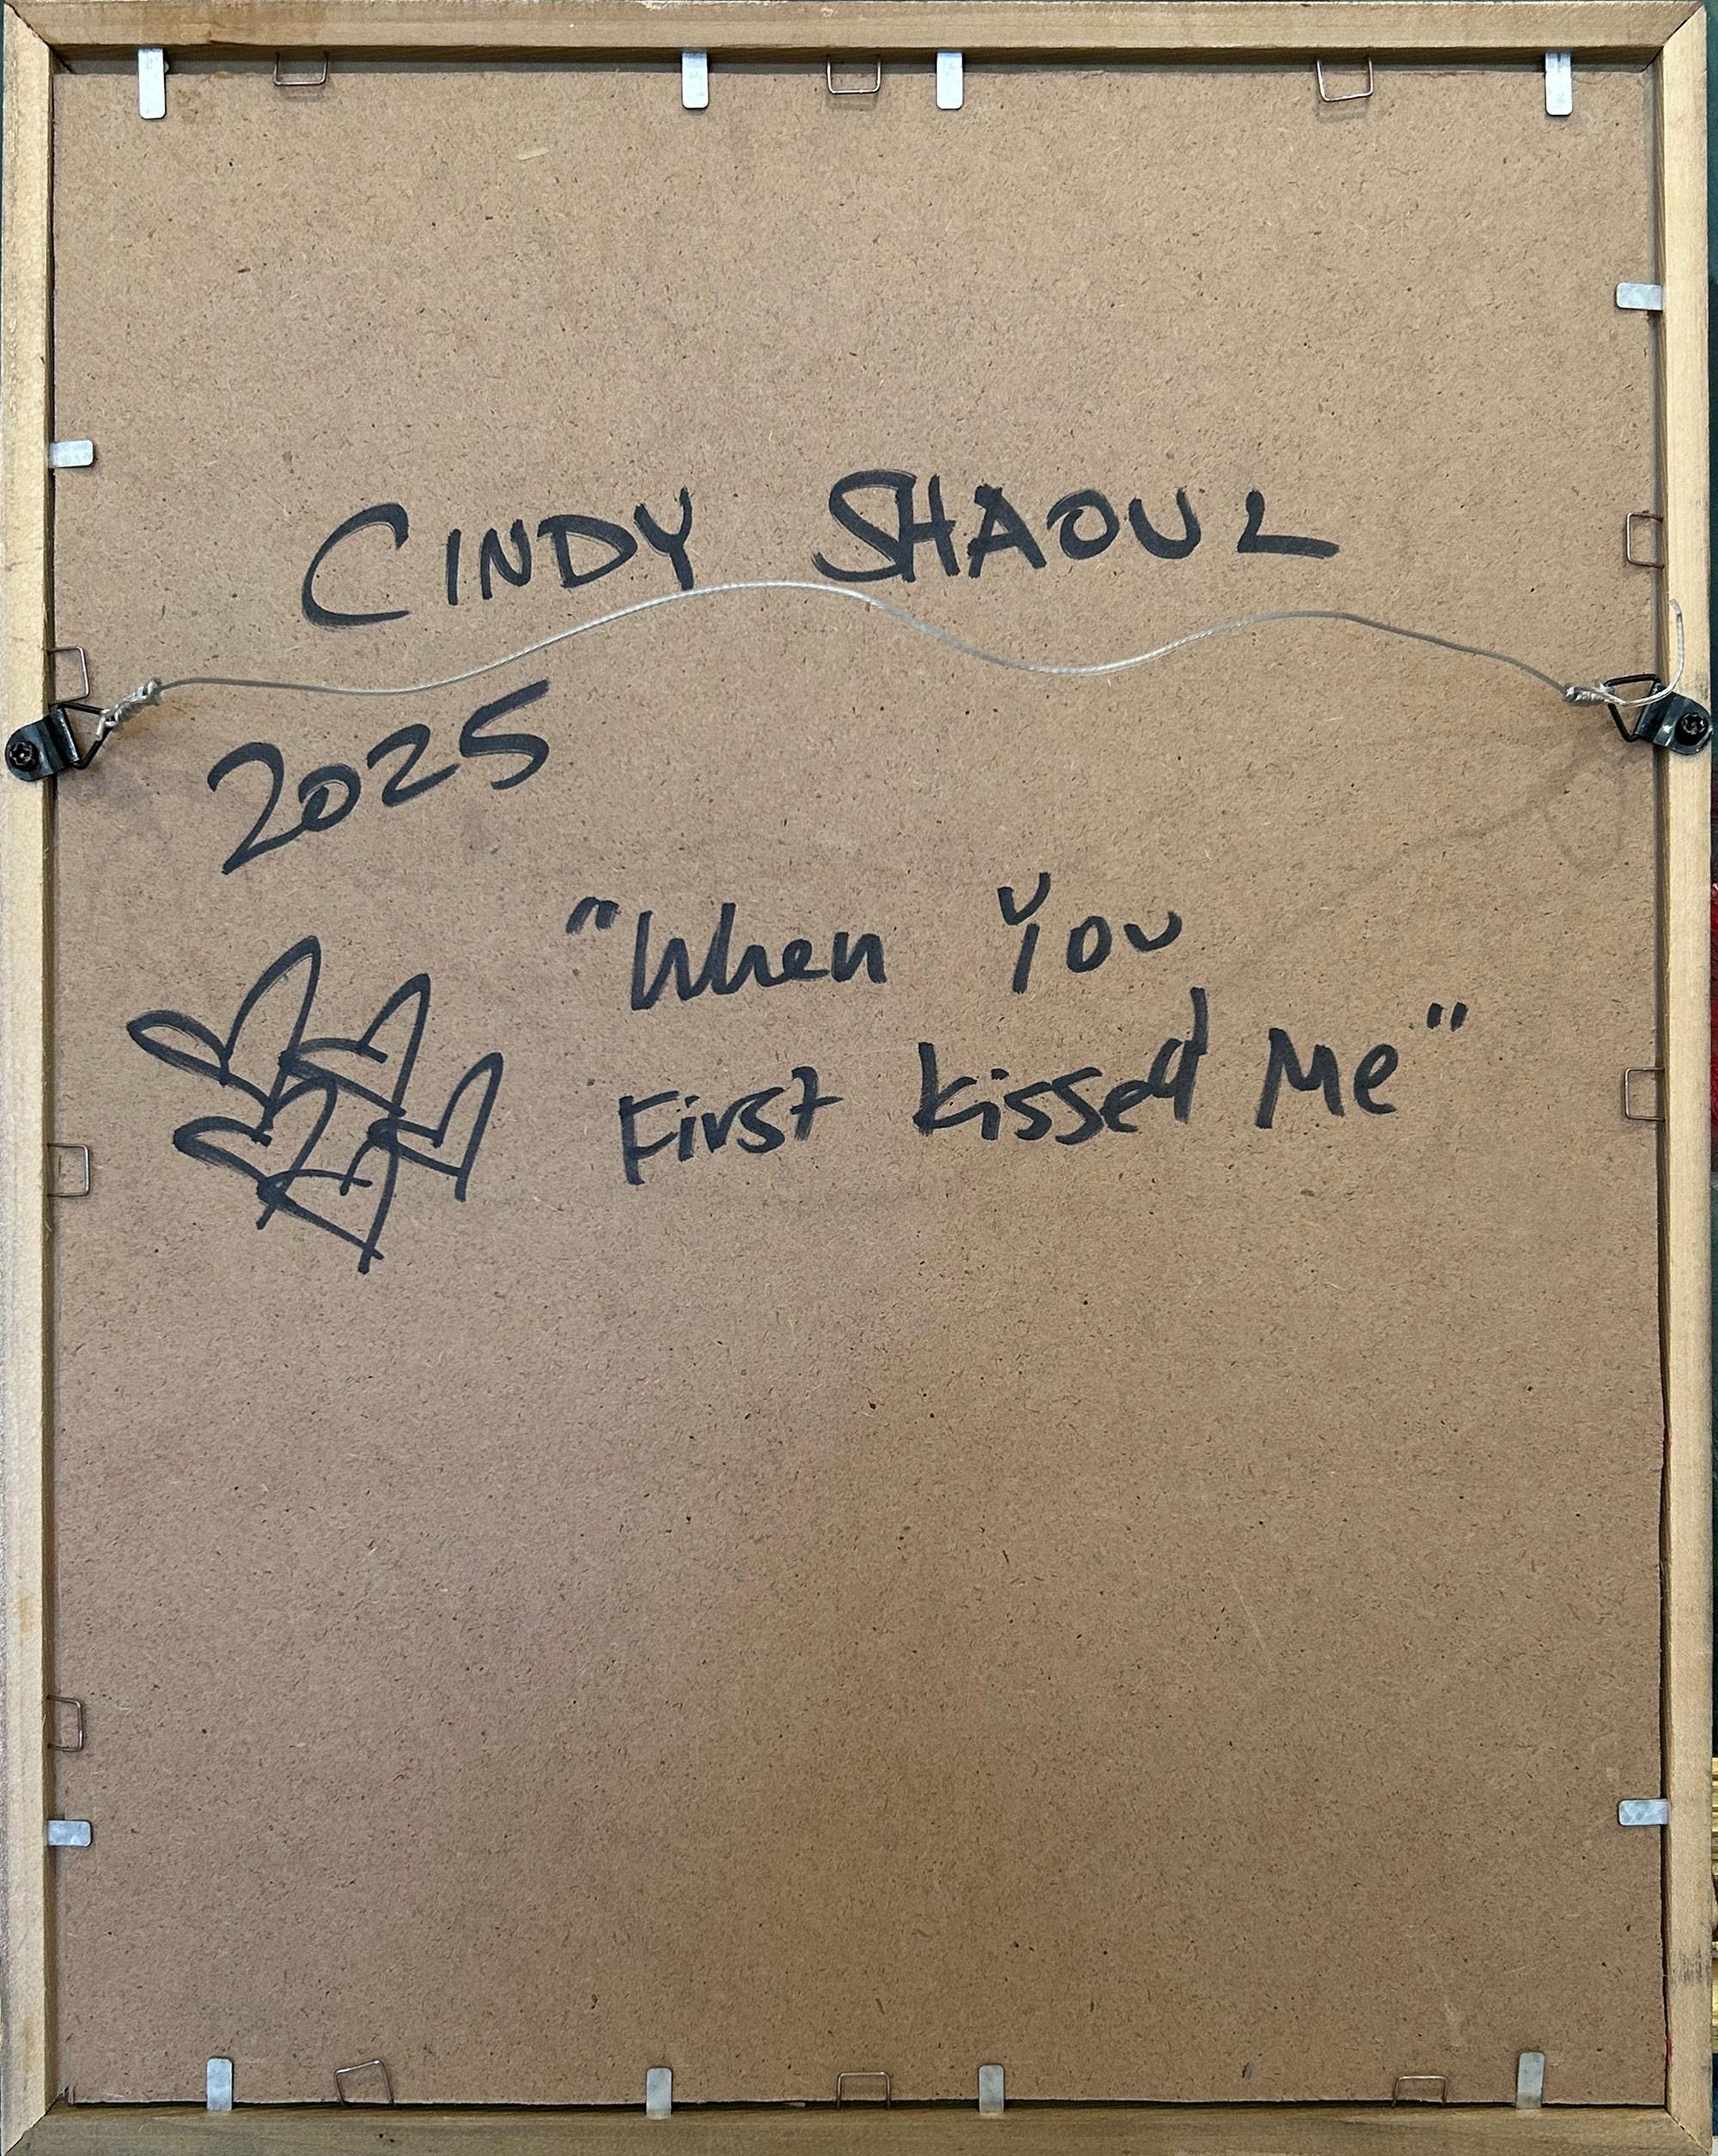 CINDY SHAOUL
2025
"When You
First kissed Me"